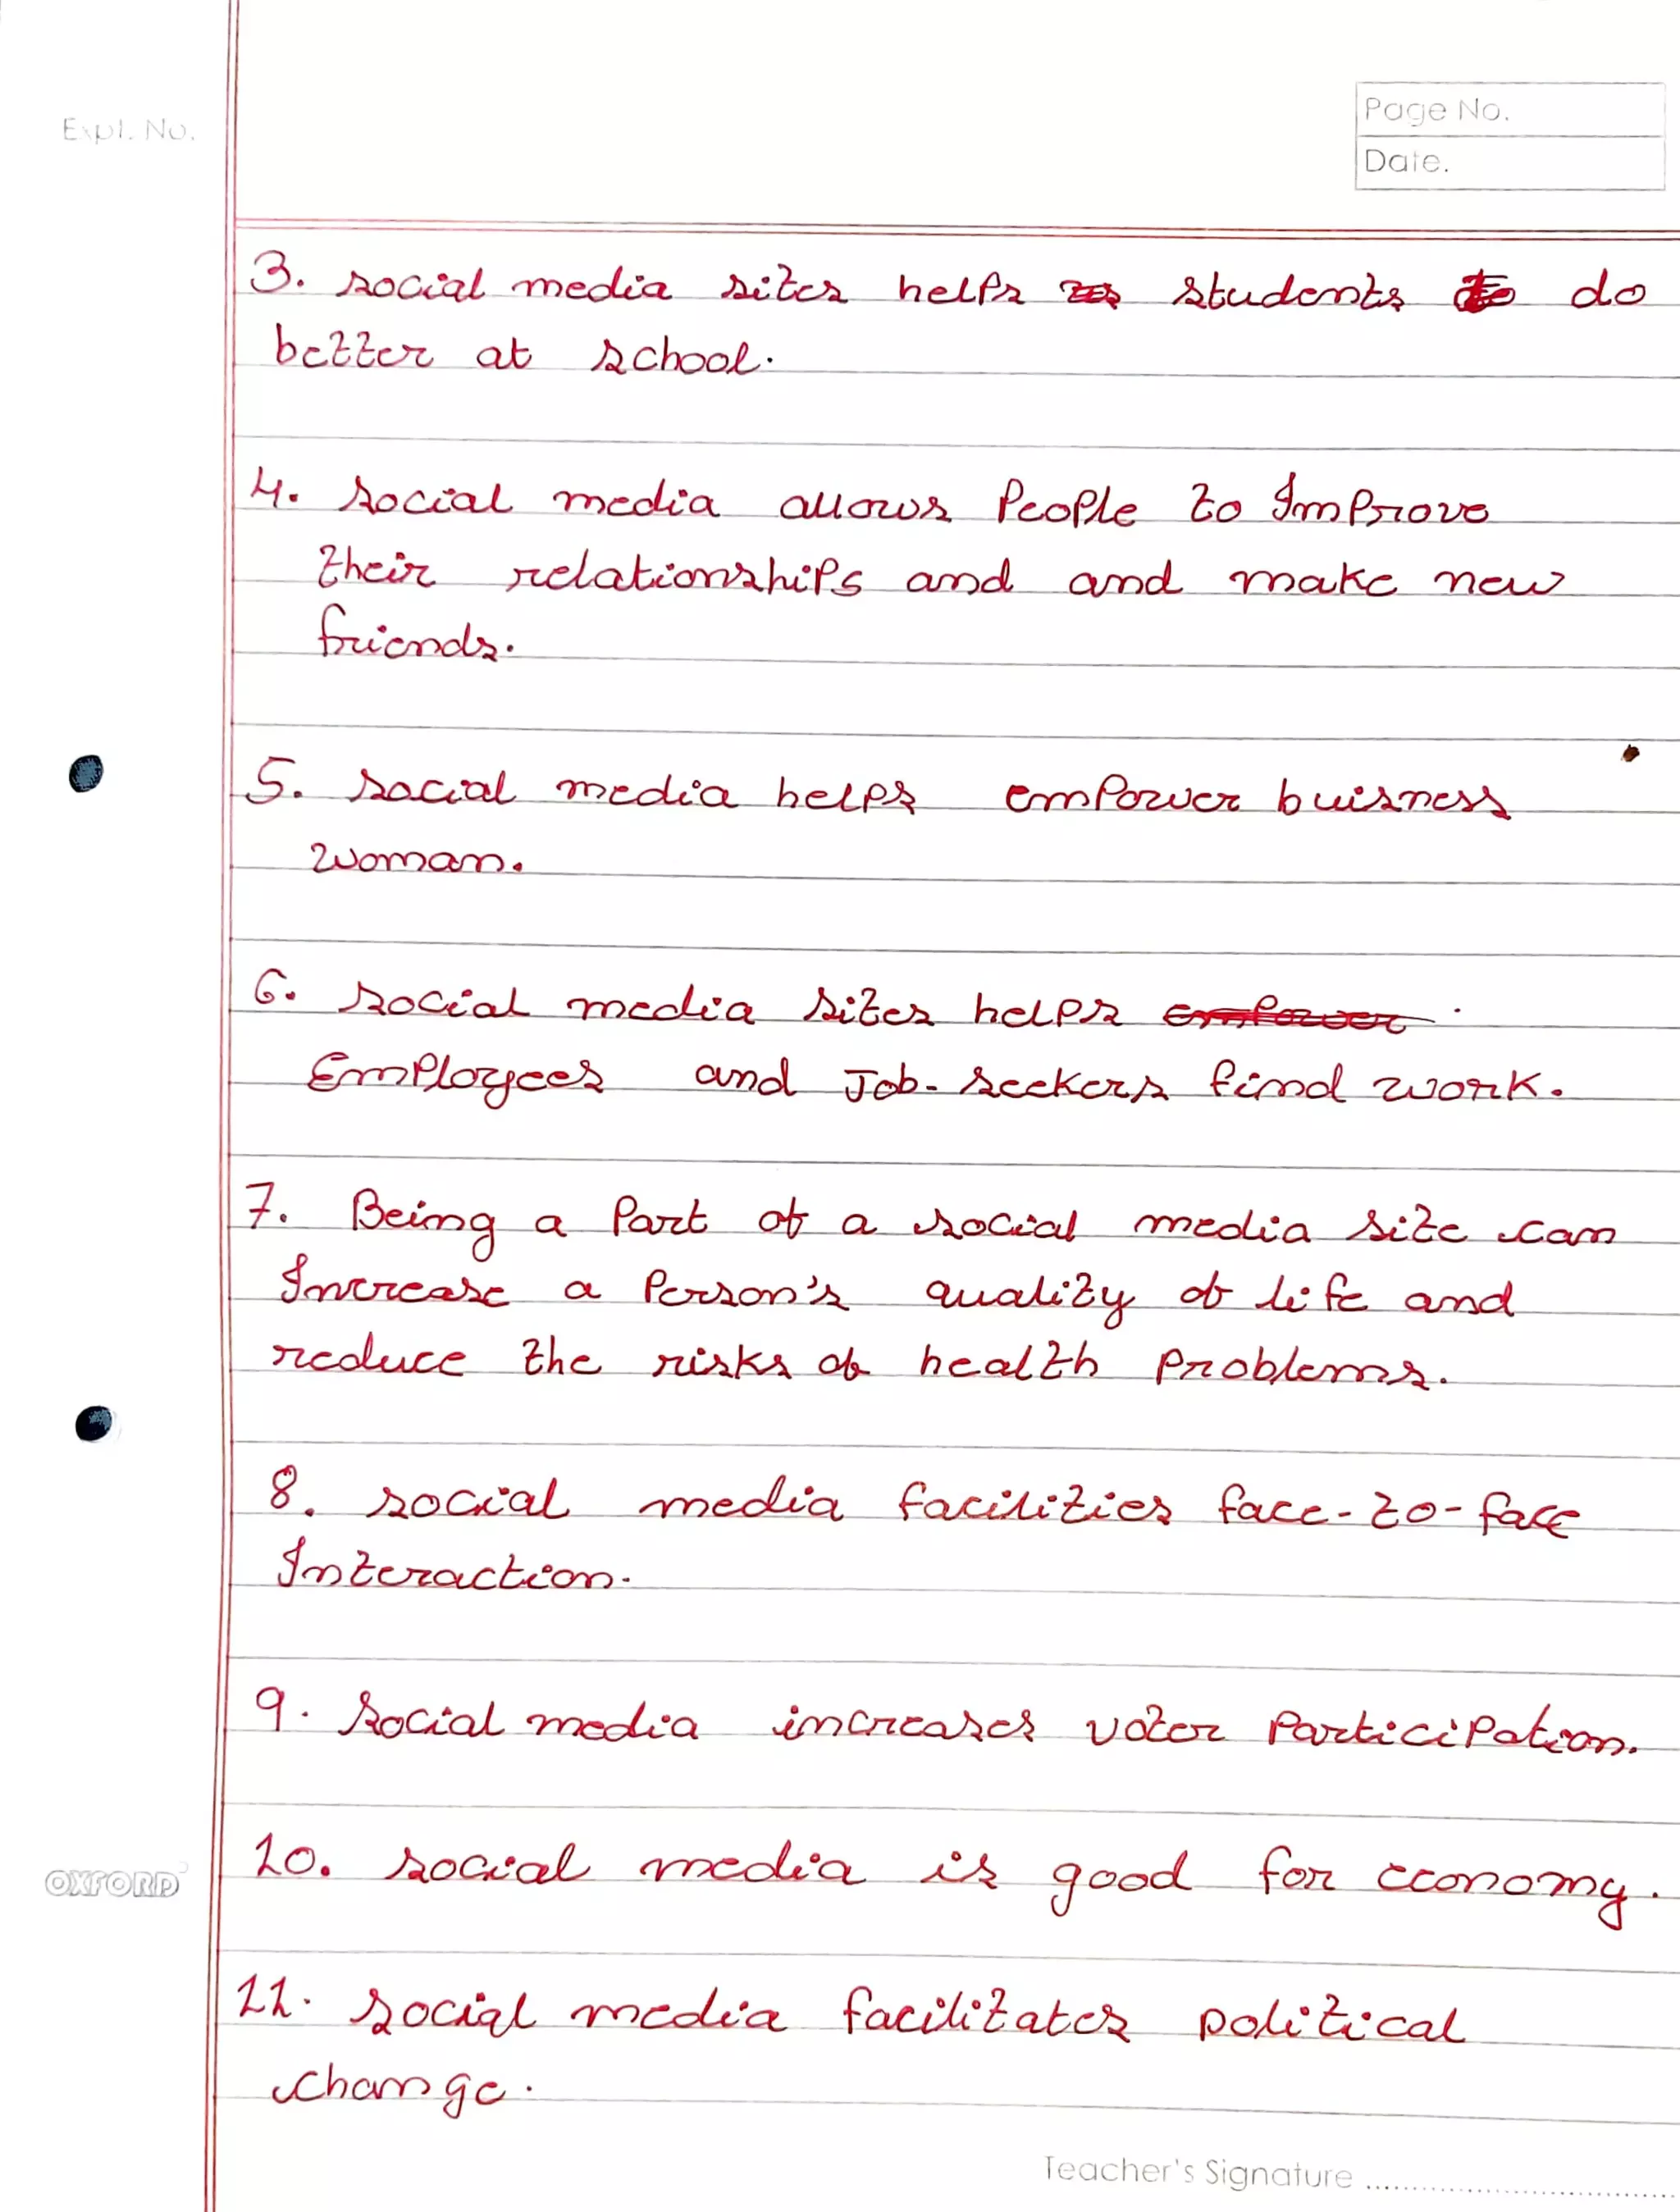 Expt. No.
Page No.
Date.
3. social media sites helps students do
better at school.
4. social media allows People to Improve
their relationships and and make new
friends.
5. social media helps emPower buisness
woman.
6. social media sites helps empower
EmPloyees and Job-seekers find work.
7. Being a Part of a social media site can
Increase a Person's quality of life and
reduce the risks of health Problems.
8. social media facilities face-to-face
Interaction.
9. Social media increases voter ParticiPation.
10. social media is good for economy.
OXFORD
11. social media facilitates political
change.
Teacher's Signature